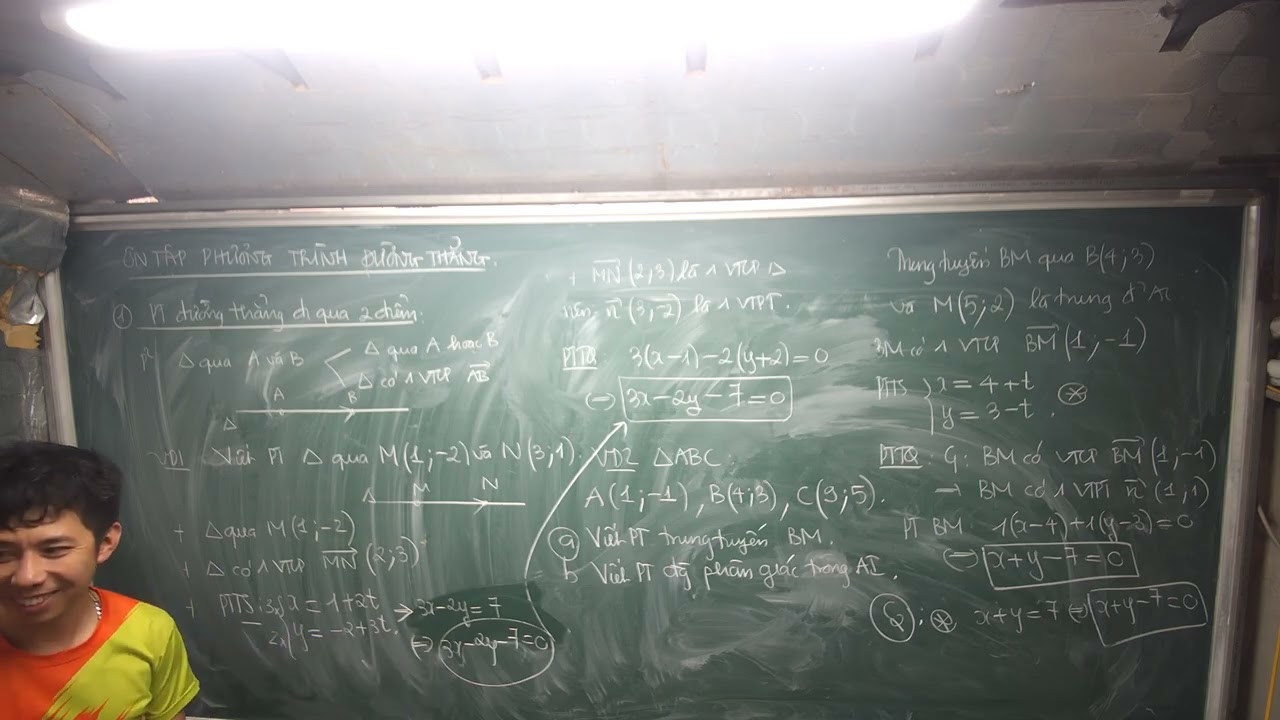 ÔN TẬP PHƯƠNG TRÌNH ĐƯỜNG THẲNG.
① PT đường thẳng đi qua 2 điểm.
P² Δ qua A và B < Δ qua A hoặc B
Δ có 1 VTCP AB
A B
Δ
VD1 Viết PT Δ qua M(1;-2) và N(3;1).
Δ M N
+ Δ qua M(1;-2)
+ Δ có 1 VTCP MN (2;3)
+ PTTS: 3x{x=1+2t
2x{y=-2+3t.
→ 3x-2y=7
⇔ 3x-2y-7=0
+ MN (2;3) là 1 VTCP Δ
nên n (3;-2) là 1 VTPT.
PTTQ 3(x-1)-2(y+2)=0
⇔ 3x-2y-7=0
VD2 ΔABC.
A(1;-1), B(4;3), C(9;5).
a Viết PT trung tuyến BM.
b Viết PT đg phân giác trong AI.
Trung tuyến BM qua B(4;3)
và M(5;2) là trung đ² AC
BM có 1 VTCP BM (1;-1)
PTTS {x=4+t
{y=3-t. ⊛
PTTQ C₁: BM có VTCP BM (1;-1)
→ BM có 1 VTPT n (1;1)
PT BM: 1(x-4)+1(y-3)=0
⇔ x+y-7=0
C₂: ⊛ x+y=7 ⇔ x+y-7=0